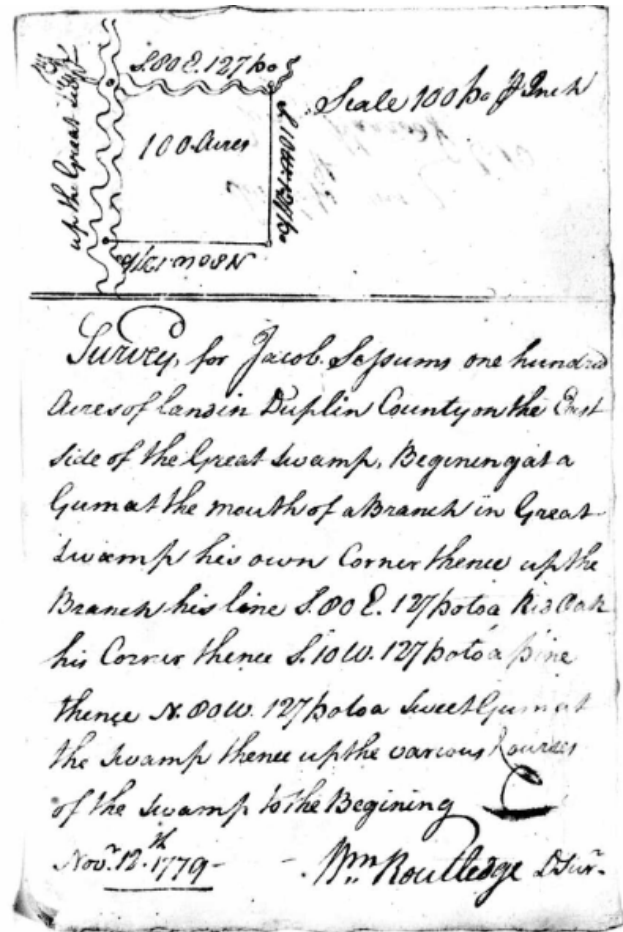 S.80 E. 127 po
Scale 100 po ⅌ Inch
up the Great
100 Acres
S 10 W. 127 po
N80W 127 po
Survey, for Jacob Sessums one hundred
Acres of land in Duplin County on the East
side of the Great Swamp, Begining at a
Gum at the mouth of a Branch in Great
Swamp his own Corner thence up the
Branch his line S. 80 E. 127 po to a Red Oak
his Corner thence S. 10 W. 127 po to a pine
thence N. 80 W. 127 po to a Sweet Gum at
the Swamp thence up the various Courses
of the Swamp to the Begining
Novr. 12th. 1779 -
Wm Routledge D Sur.